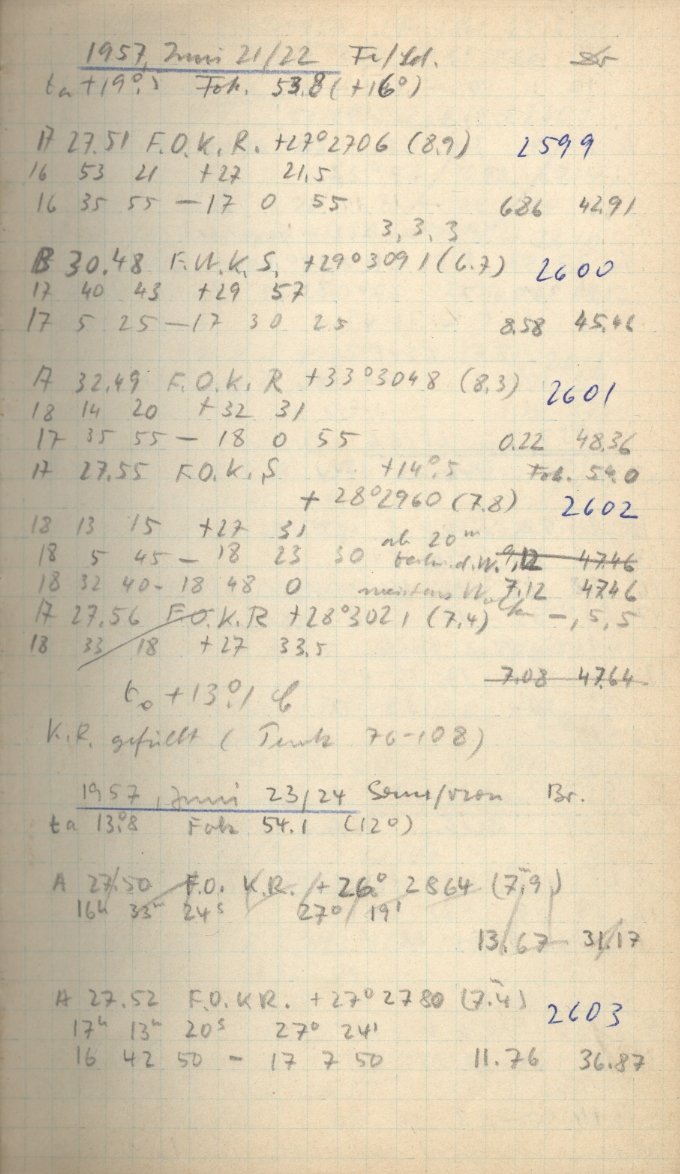 1957, Juni 21/22 Fr/Sd.
ta +19°.5 Fok. 53.8 (+16°)
A 27.51 F.O.K.R. +27°2706 (8.9) 2599
16 53 21 +27 21.5
16 35 55 – 17 0 55 6.86 42.91
3, 3, 3
B 30.48 F.W.K.S. +29°3091 (6.7) 2600
17 40 43 +29 57
17 5 25 – 17 30 25 8.58 45.46
A 32.49 F.O.K.R +33°3048 (8.3) 2601
18 14 20 +32 31
17 35 55 – 18 0 55 0.22 48.36
A 27.55 F.O.K.S +14°.5 Fok. 54.0
+ 28°2960 (7.8) 2602
18 13 15 +27 31 ab 20m
18 5 45 – 18 23 30 d.W. 9.12 47.46
18 32 40 – 18 48 0 meistens 7.12 47.46
A 27.56 F.O.K.R +28°3021 (7.4) –, 5, 5
18 33 18 +27 33.5
7.08 47.64
t0 +13°.1 C
K.R. gefüllt ( Tank 76-108)
1957, Juni 23/24 Br.
ta 13°.8 Fok 54.1 (12°)
A 27.50 F.O. K.R. + 26° 2864 (7m.9)
16h 33m 24s 27° 19'
13.67 31.17
A 27.52 F.O.KR. +27° 2780 (7m.4) 2603
17h 13m 20s 27° 24'
16 42 50 – 17 7 50 11.76 36.87